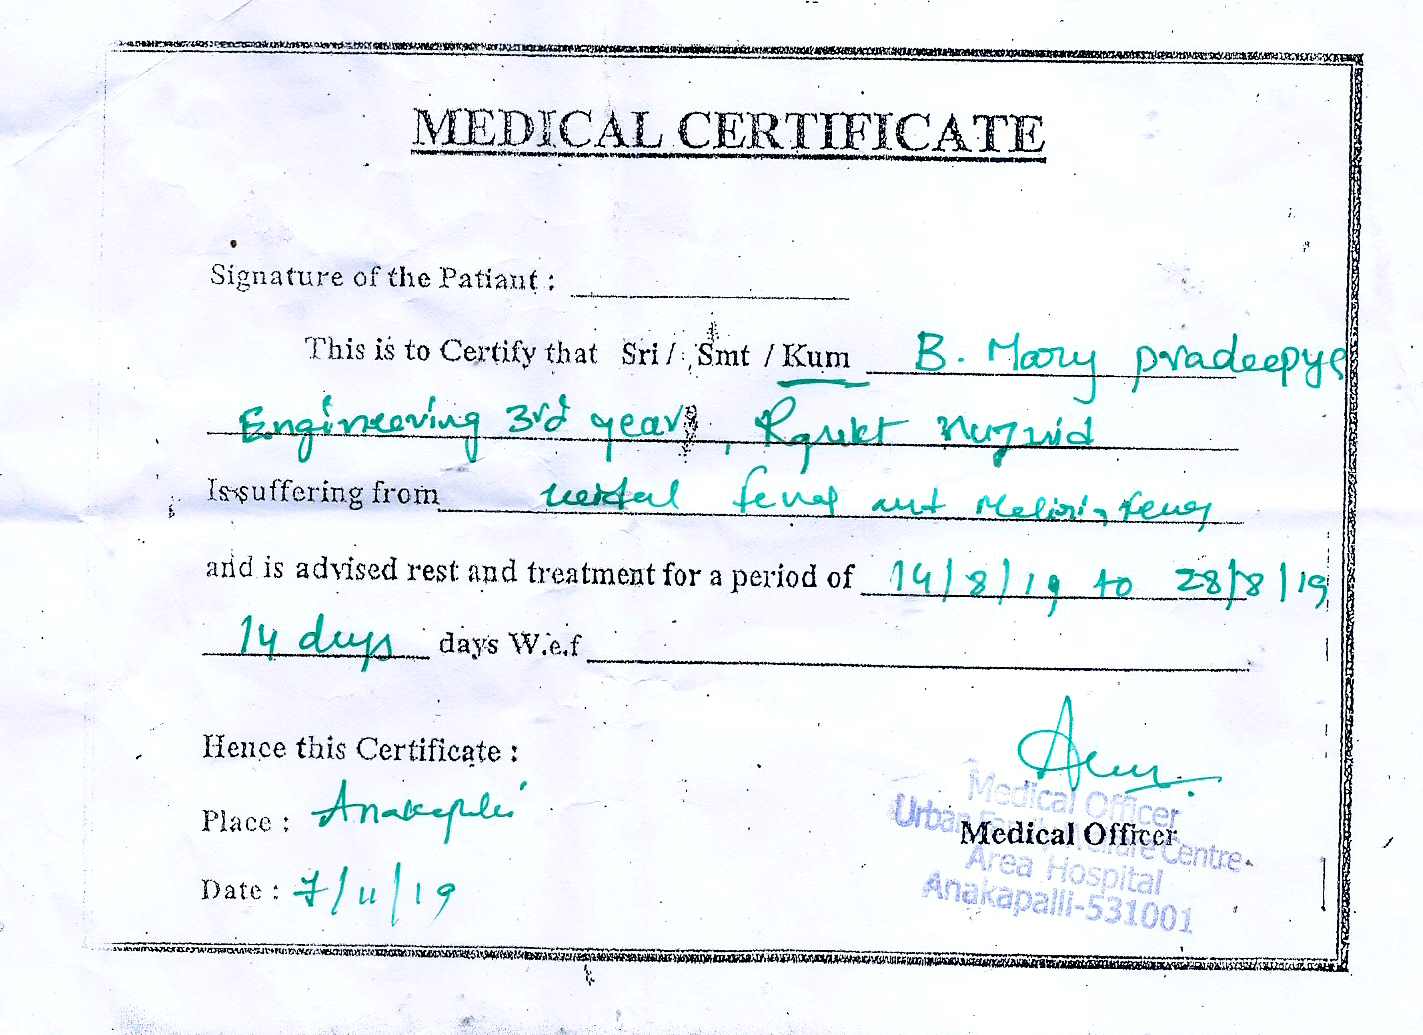 MEDICAL CERTIFICATE
Signature of the Patiant :
This is to Certify that Sri / Smt / Kum B. Mary pradeepya
Engineering 3rd year, Rgukt Nuzvid
Is suffering from fever and fever
and is advised rest and treatment for a period of 14/8/19 to 28/8/19
14 days days W.e.f
Hence this Certificate :
Place : Anakapalli
Date : 7/11/19
Medical Officer
Medical Officer
Urban Welfare Centre
Area Hospital
Anakapalli-531001